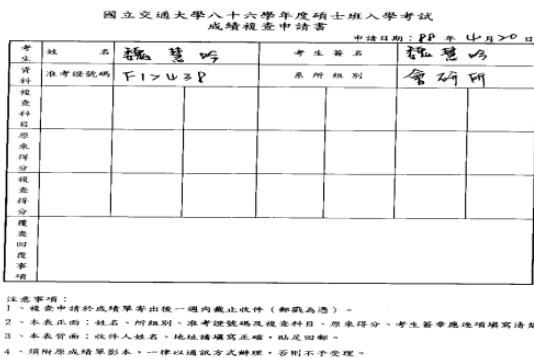 國立交通大學八十六學年度碩士班入學考試
成績複查申請書
申請日期：88 年 4 月 20 日
考生資料 姓名 魏慧吟 考生簽名 魏慧吟
准考證號碼 F12438 系所組別 會研所
複查科目
原來得分
複查得分
覆查回覆事項
注意事項：
1、複查申請於成績單寄出後一週內截止收件（郵戳為憑）。
2、本表正面：姓名、所組別、准考證號碼及複查科目、原來得分、考生簽章應逐項填寫清楚
3、本表背面：收件人姓名、地址請填寫正確，貼足回郵。
4、須附原成績單影本，一律以通訊方式辦理，否則不予受理。